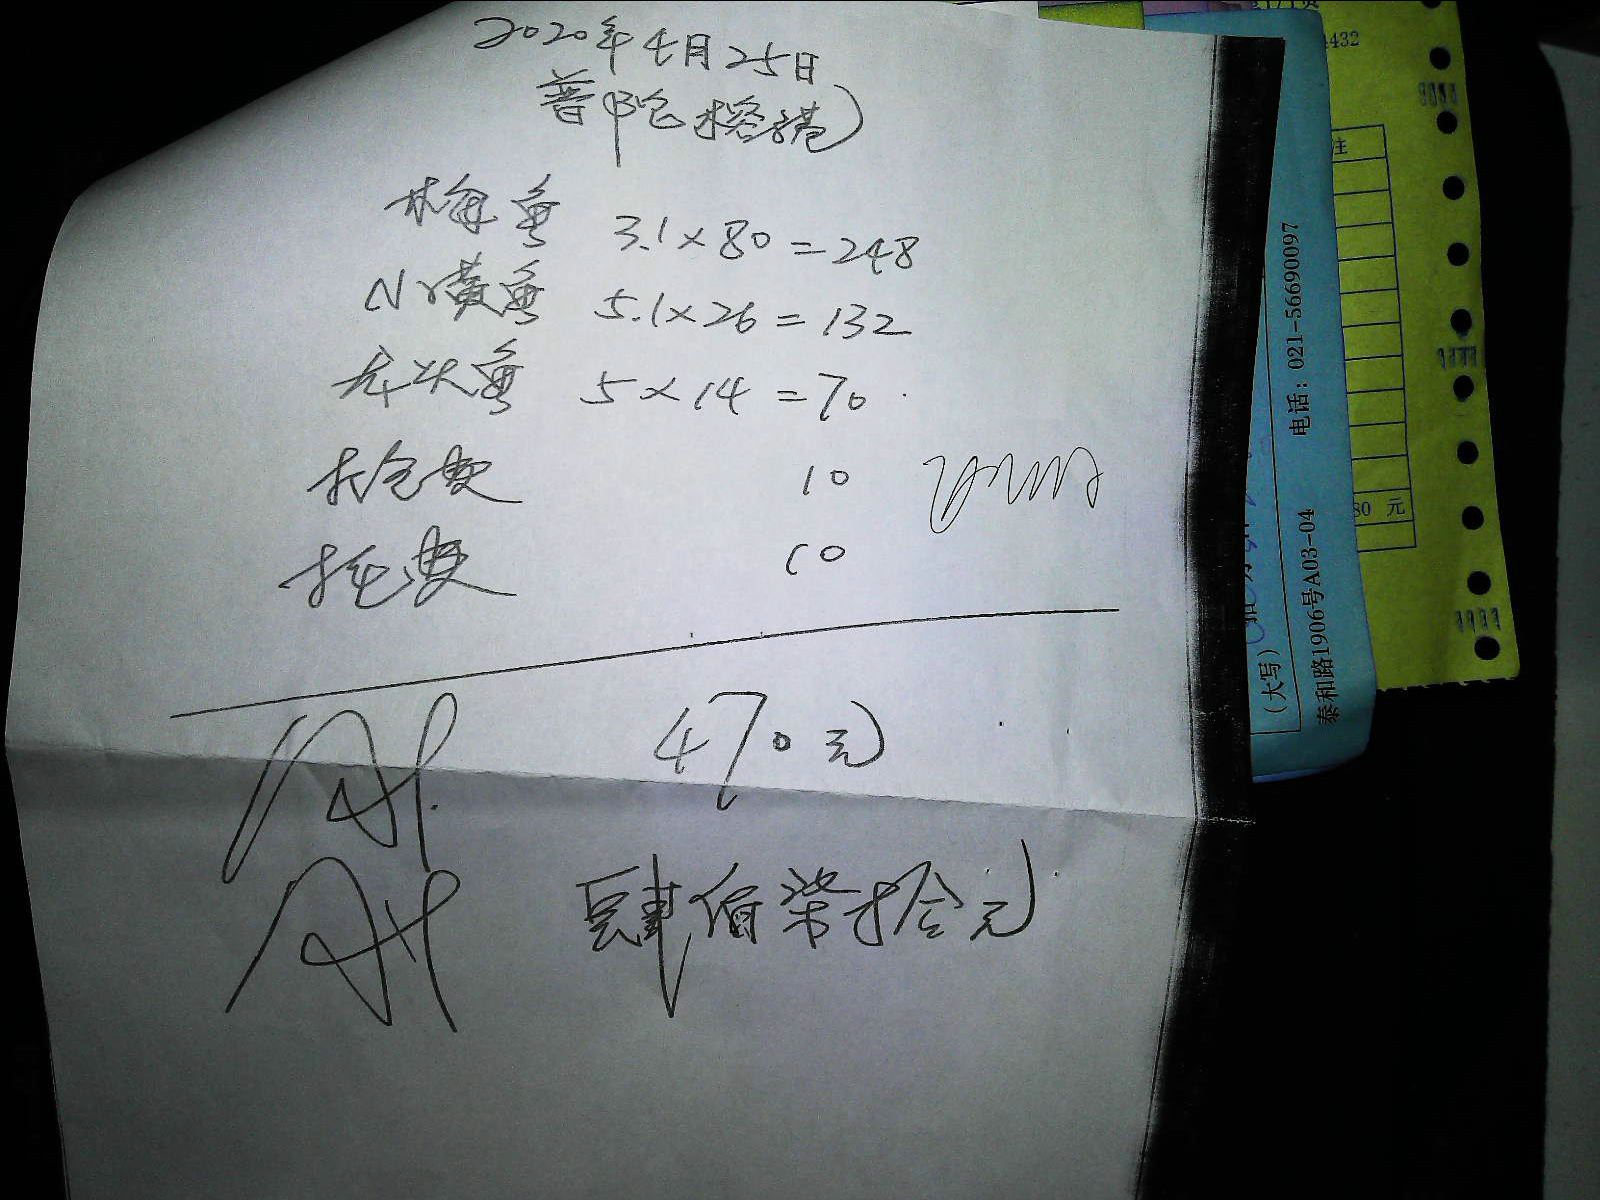 2020年4月25日
普陀榕港
梅鱼 3.1×80=248
小黄鱼 5.1×26=132
龙头鱼 5×14=70
打包费 10
托费 10
470元
肆佰柒拾元
4432
注
80 元
电话: 021-56690097
(大写)
泰和路1906号A03-04